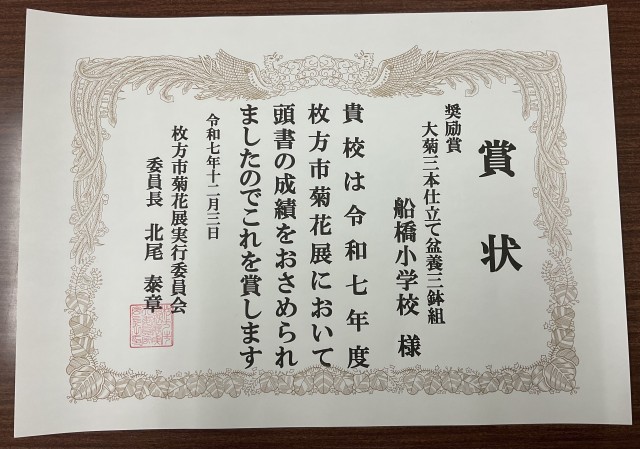 賞状
奨励賞
大菊三本仕立て盆養三鉢組
船橋小学校 様
貴校は令和七年度
枚方市菊花展において
頭書の成績をおさめられ
ましたのでこれを賞します
令和七年十二月三日
枚方市菊花展実行委員会
委員長 北尾 泰章